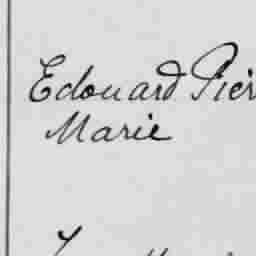 Edouard Pier
Marie